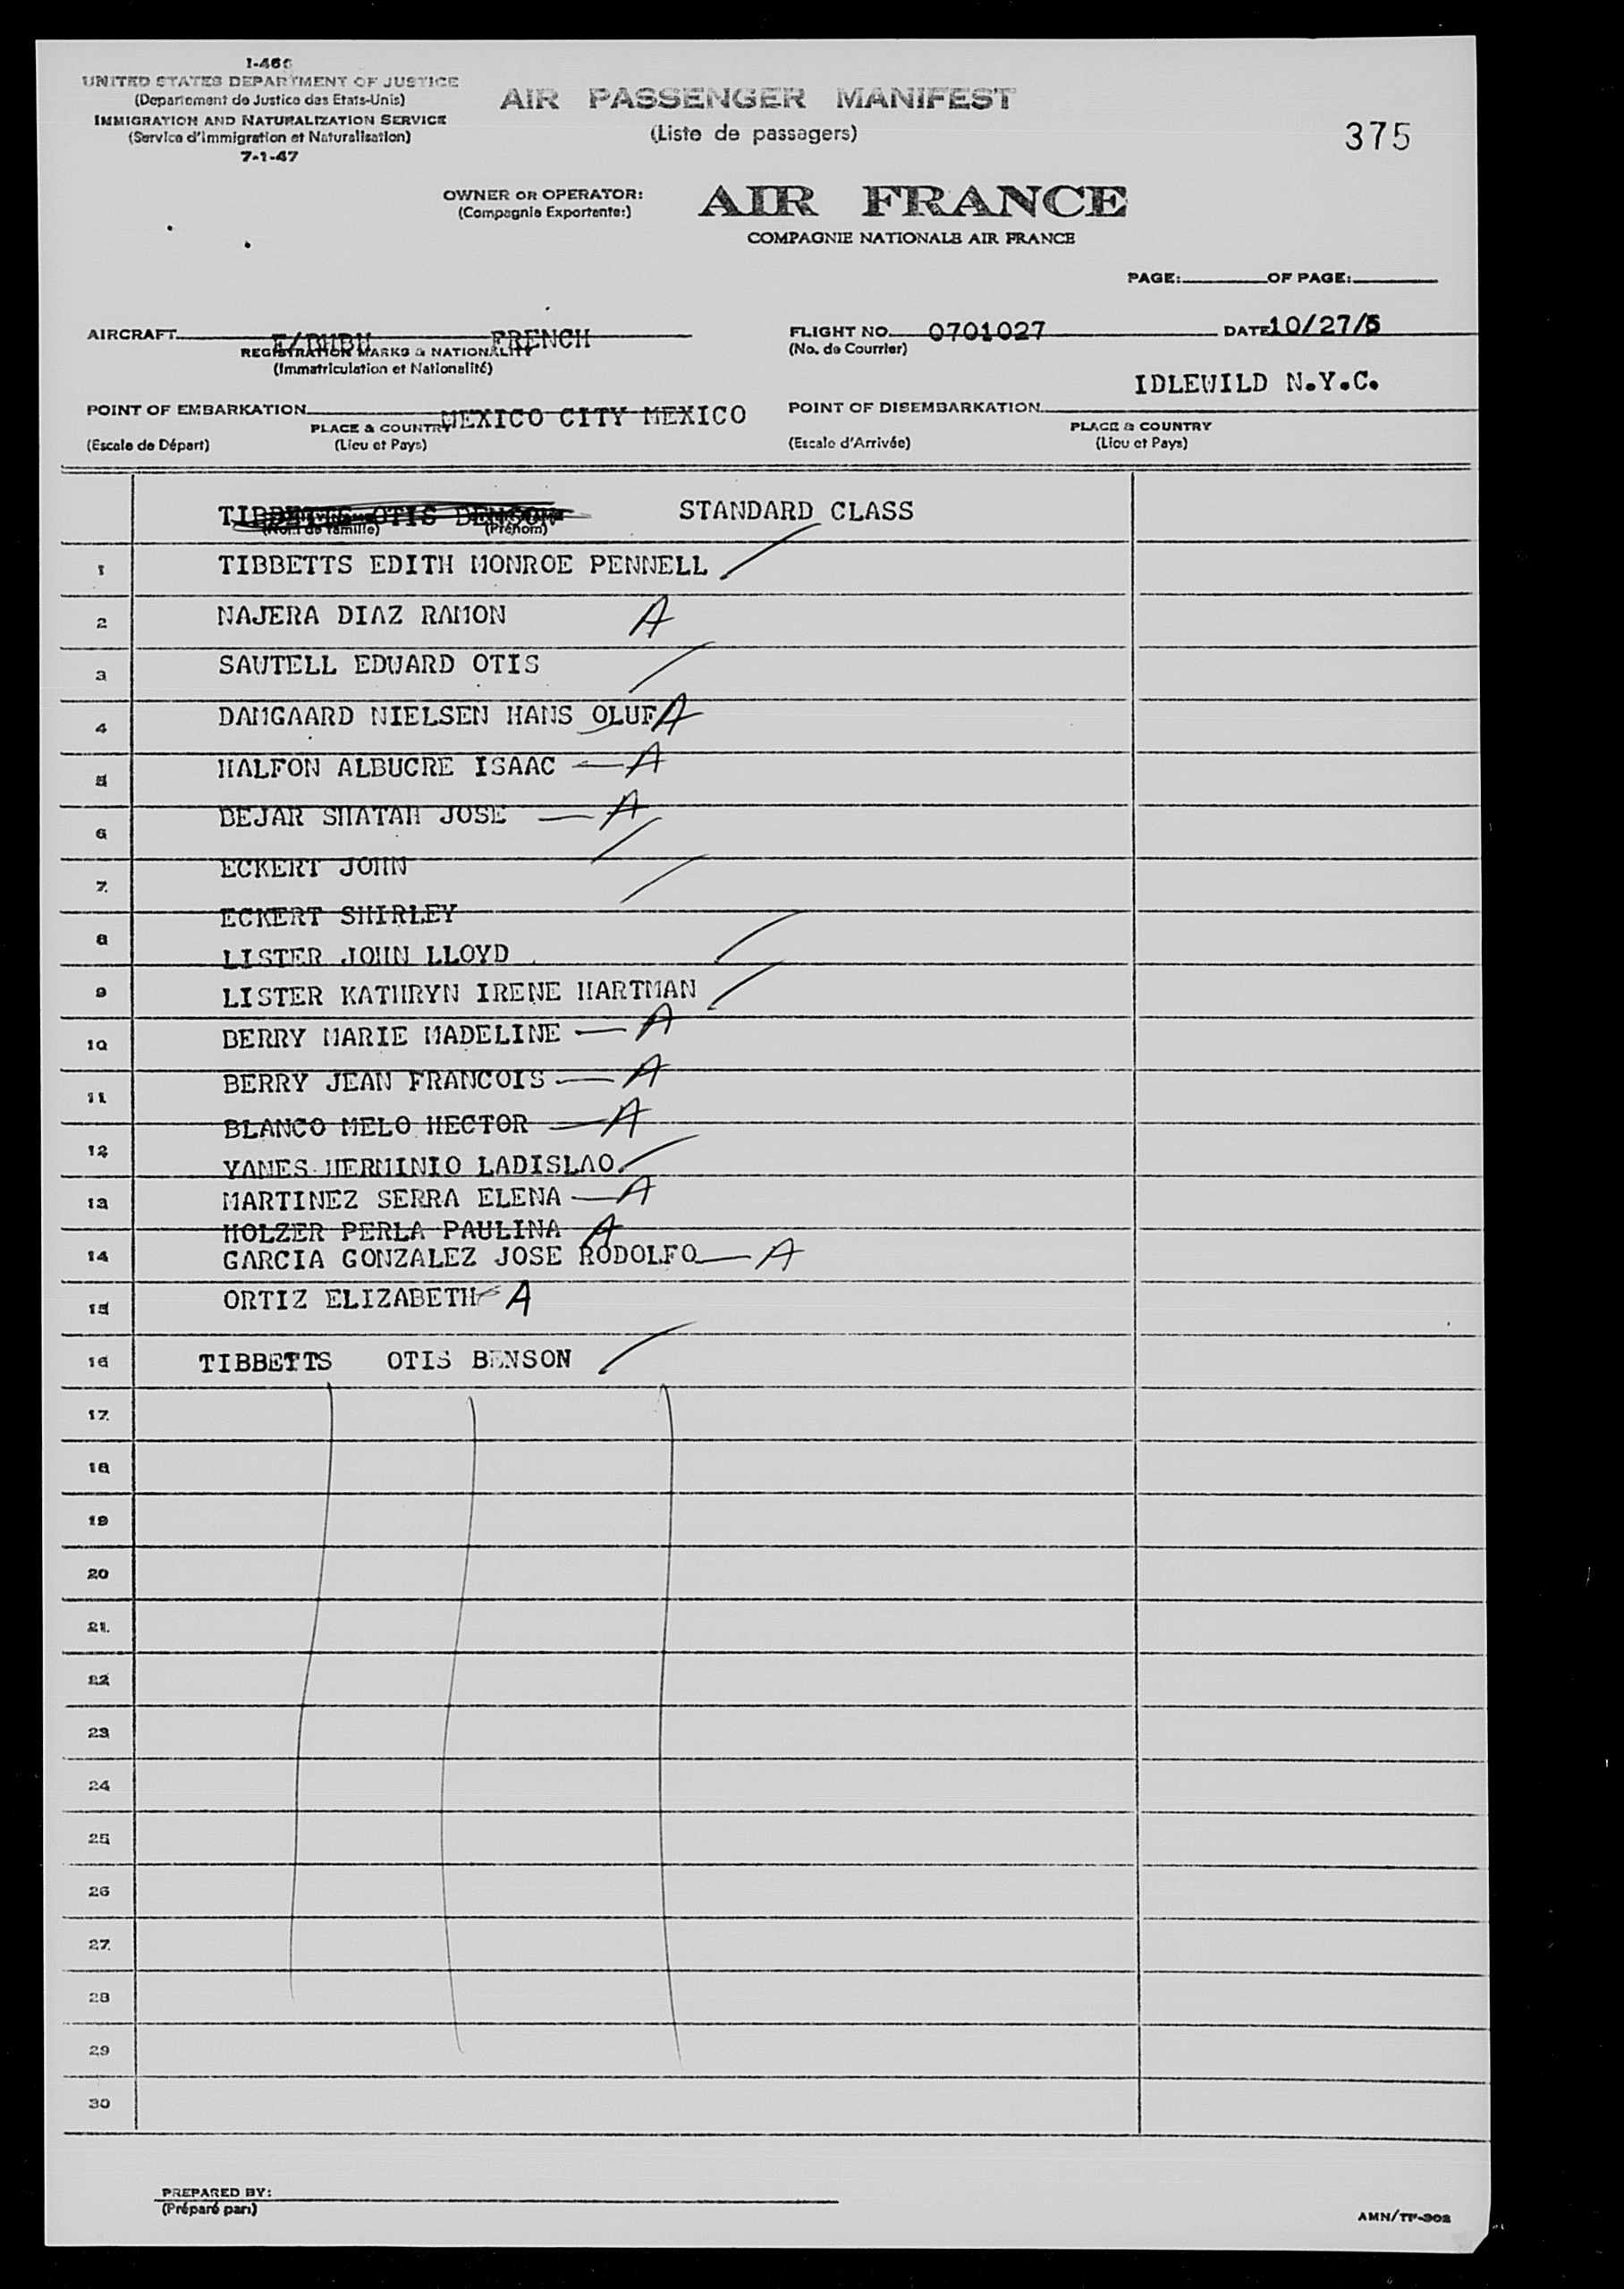 I-466
UNITED STATES DEPARTMENT OF JUSTICE
(Departement de Justice des Etats-Unis)
IMMIGRATION AND NATURALIZATION SERVICE
(Service d'immigration et Naturalisation)
7-1-47
AIR PASSENGER MANIFEST
(Liste de passagers)
375
OWNER OR OPERATOR: AIR FRANCE
(Compagnie Exportente:)
COMPAGNIE NATIONALE AIR FRANCE
PAGE: OF PAGE:
AIRCRAFT FRENCH
REGISTRATION MARKS & NATIONALITY
(Immatriculation et Nationalité)
FLIGHT NO. 0701027 DATE 10/27/5
(No. de Courrier)
IDLEWILD N.Y.C.
POINT OF EMBARKATION MEXICO CITY MEXICO
PLACE & COUNTRY
(Escale de Départ) (Lieu et Pays)
POINT OF DISEMBARKATION
PLACE & COUNTRY
(Escale d'Arrivée) (Lieu et Pays)
TIBBETTS OTIS BENSON STANDARD CLASS
(Nom de famille) (Prénom)
1 TIBBETTS EDITH MONROE PENNELL
2 NAJERA DIAZ RAMON A
3 SAWTELL EDWARD OTIS
4 DAMGAARD NIELSEN HANS OLUF A
5 HALFON ALBUCRE ISAAC — A
6 BEJAR SHATAH JOSE — A
7. ECKERT JOHN
ECKERT SHIRLEY
8 LISTER JOHN LLOYD
9 LISTER KATHRYN IRENE HARTMAN
10 BERRY MARIE MADELINE — A
11 BERRY JEAN FRANCOIS — A
BLANCO MELO HECTOR — A
12 YANES HERMINIO LADISLAO
13 MARTINEZ SERRA ELENA — A
HOLZER PERLA PAULINA A
14 GARCIA GONZALEZ JOSE RODOLFO — A
15 ORTIZ ELIZABETH A
16 TIBBETTS OTIS BENSON
17.
18
19
20
21.
22
23
24
25
26
27.
28
29
30
PREPARED BY:
(Préparé par:)
AMN/TF-302